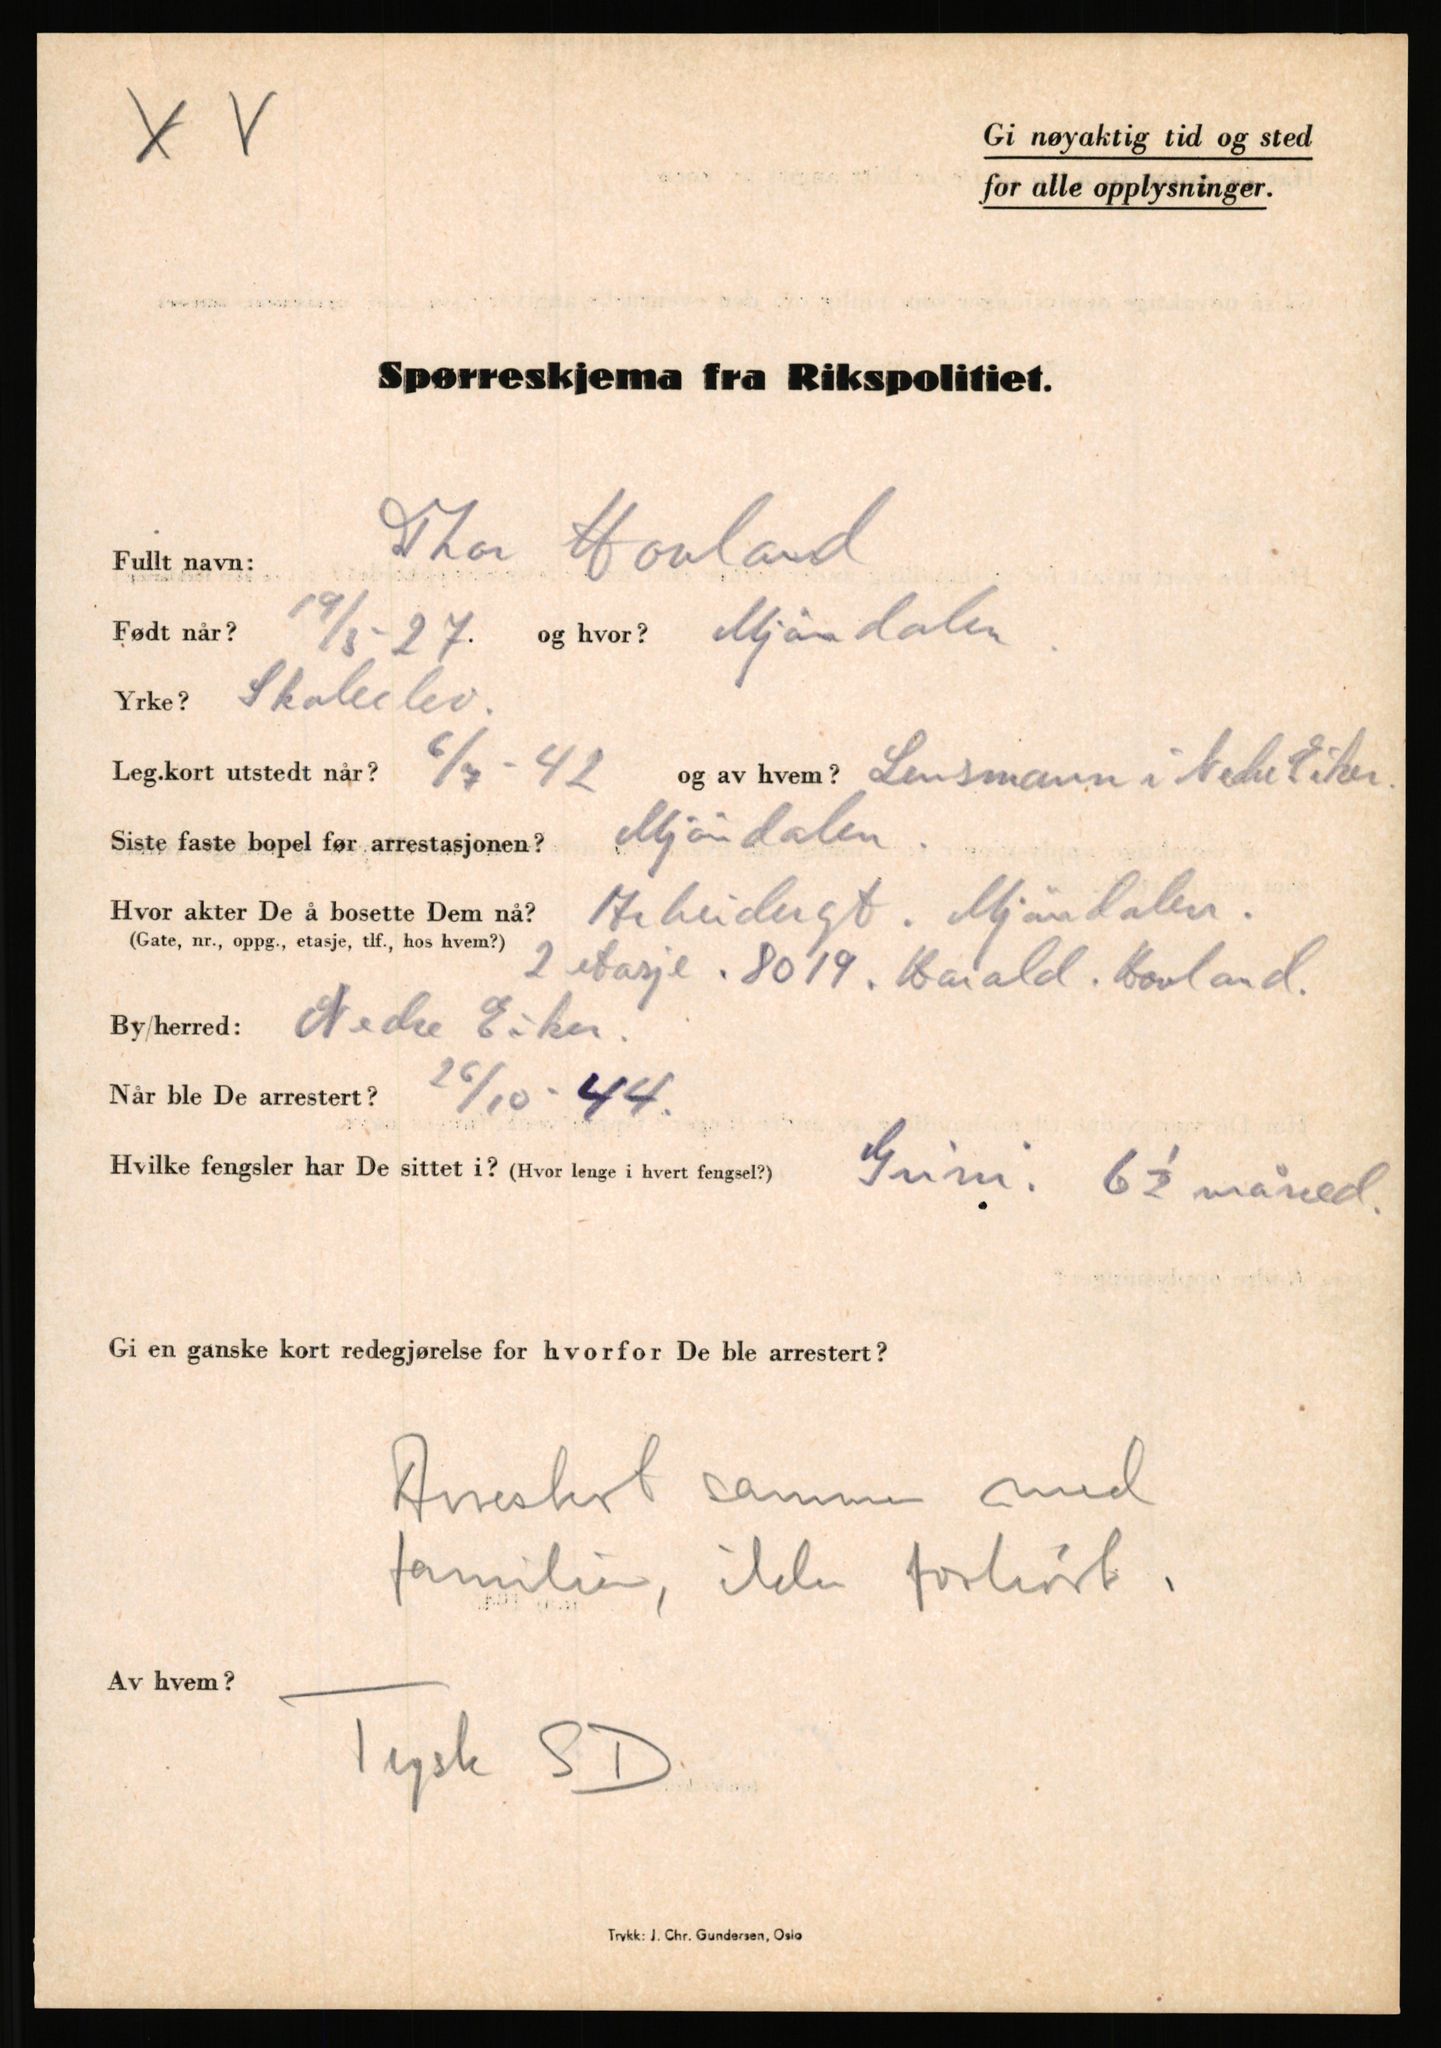 X V
Gi nøyaktig tid og sted
for alle opplysninger.
Spørreskjema fra Rikspolitiet.
Fullt navn: Thor Hovland
Født når? 19/5-27. og hvor? Mjöndalen.
Yrke? Skoleelev.
Leg.kort utstedt når? 6/7-42 og av hvem? Lensmann i Nedre Eiker.
Siste faste bopel før arrestasjonen? Mjöndalen.
Hvor akter De å bosette Dem nå? Arbeidergt. Mjöndalen.
(Gate, nr., oppg., etasje, tlf., hos hvem?) 2 etasje. 8019. Harald. Hovland.
By/herred: Nedre Eiker.
Når ble De arrestert? 26/10-44.
Hvilke fengsler har De sittet i? (Hvor lenge i hvert fengsel?) Grini. 6 1/2 måned.
Gi en ganske kort redegjørelse for hvorfor De ble arrestert?
Arrestert sammen med
familien, ikke forhørt.
Av hvem?
Tysk SD
Trykk: J. Chr. Gundersen, Oslo